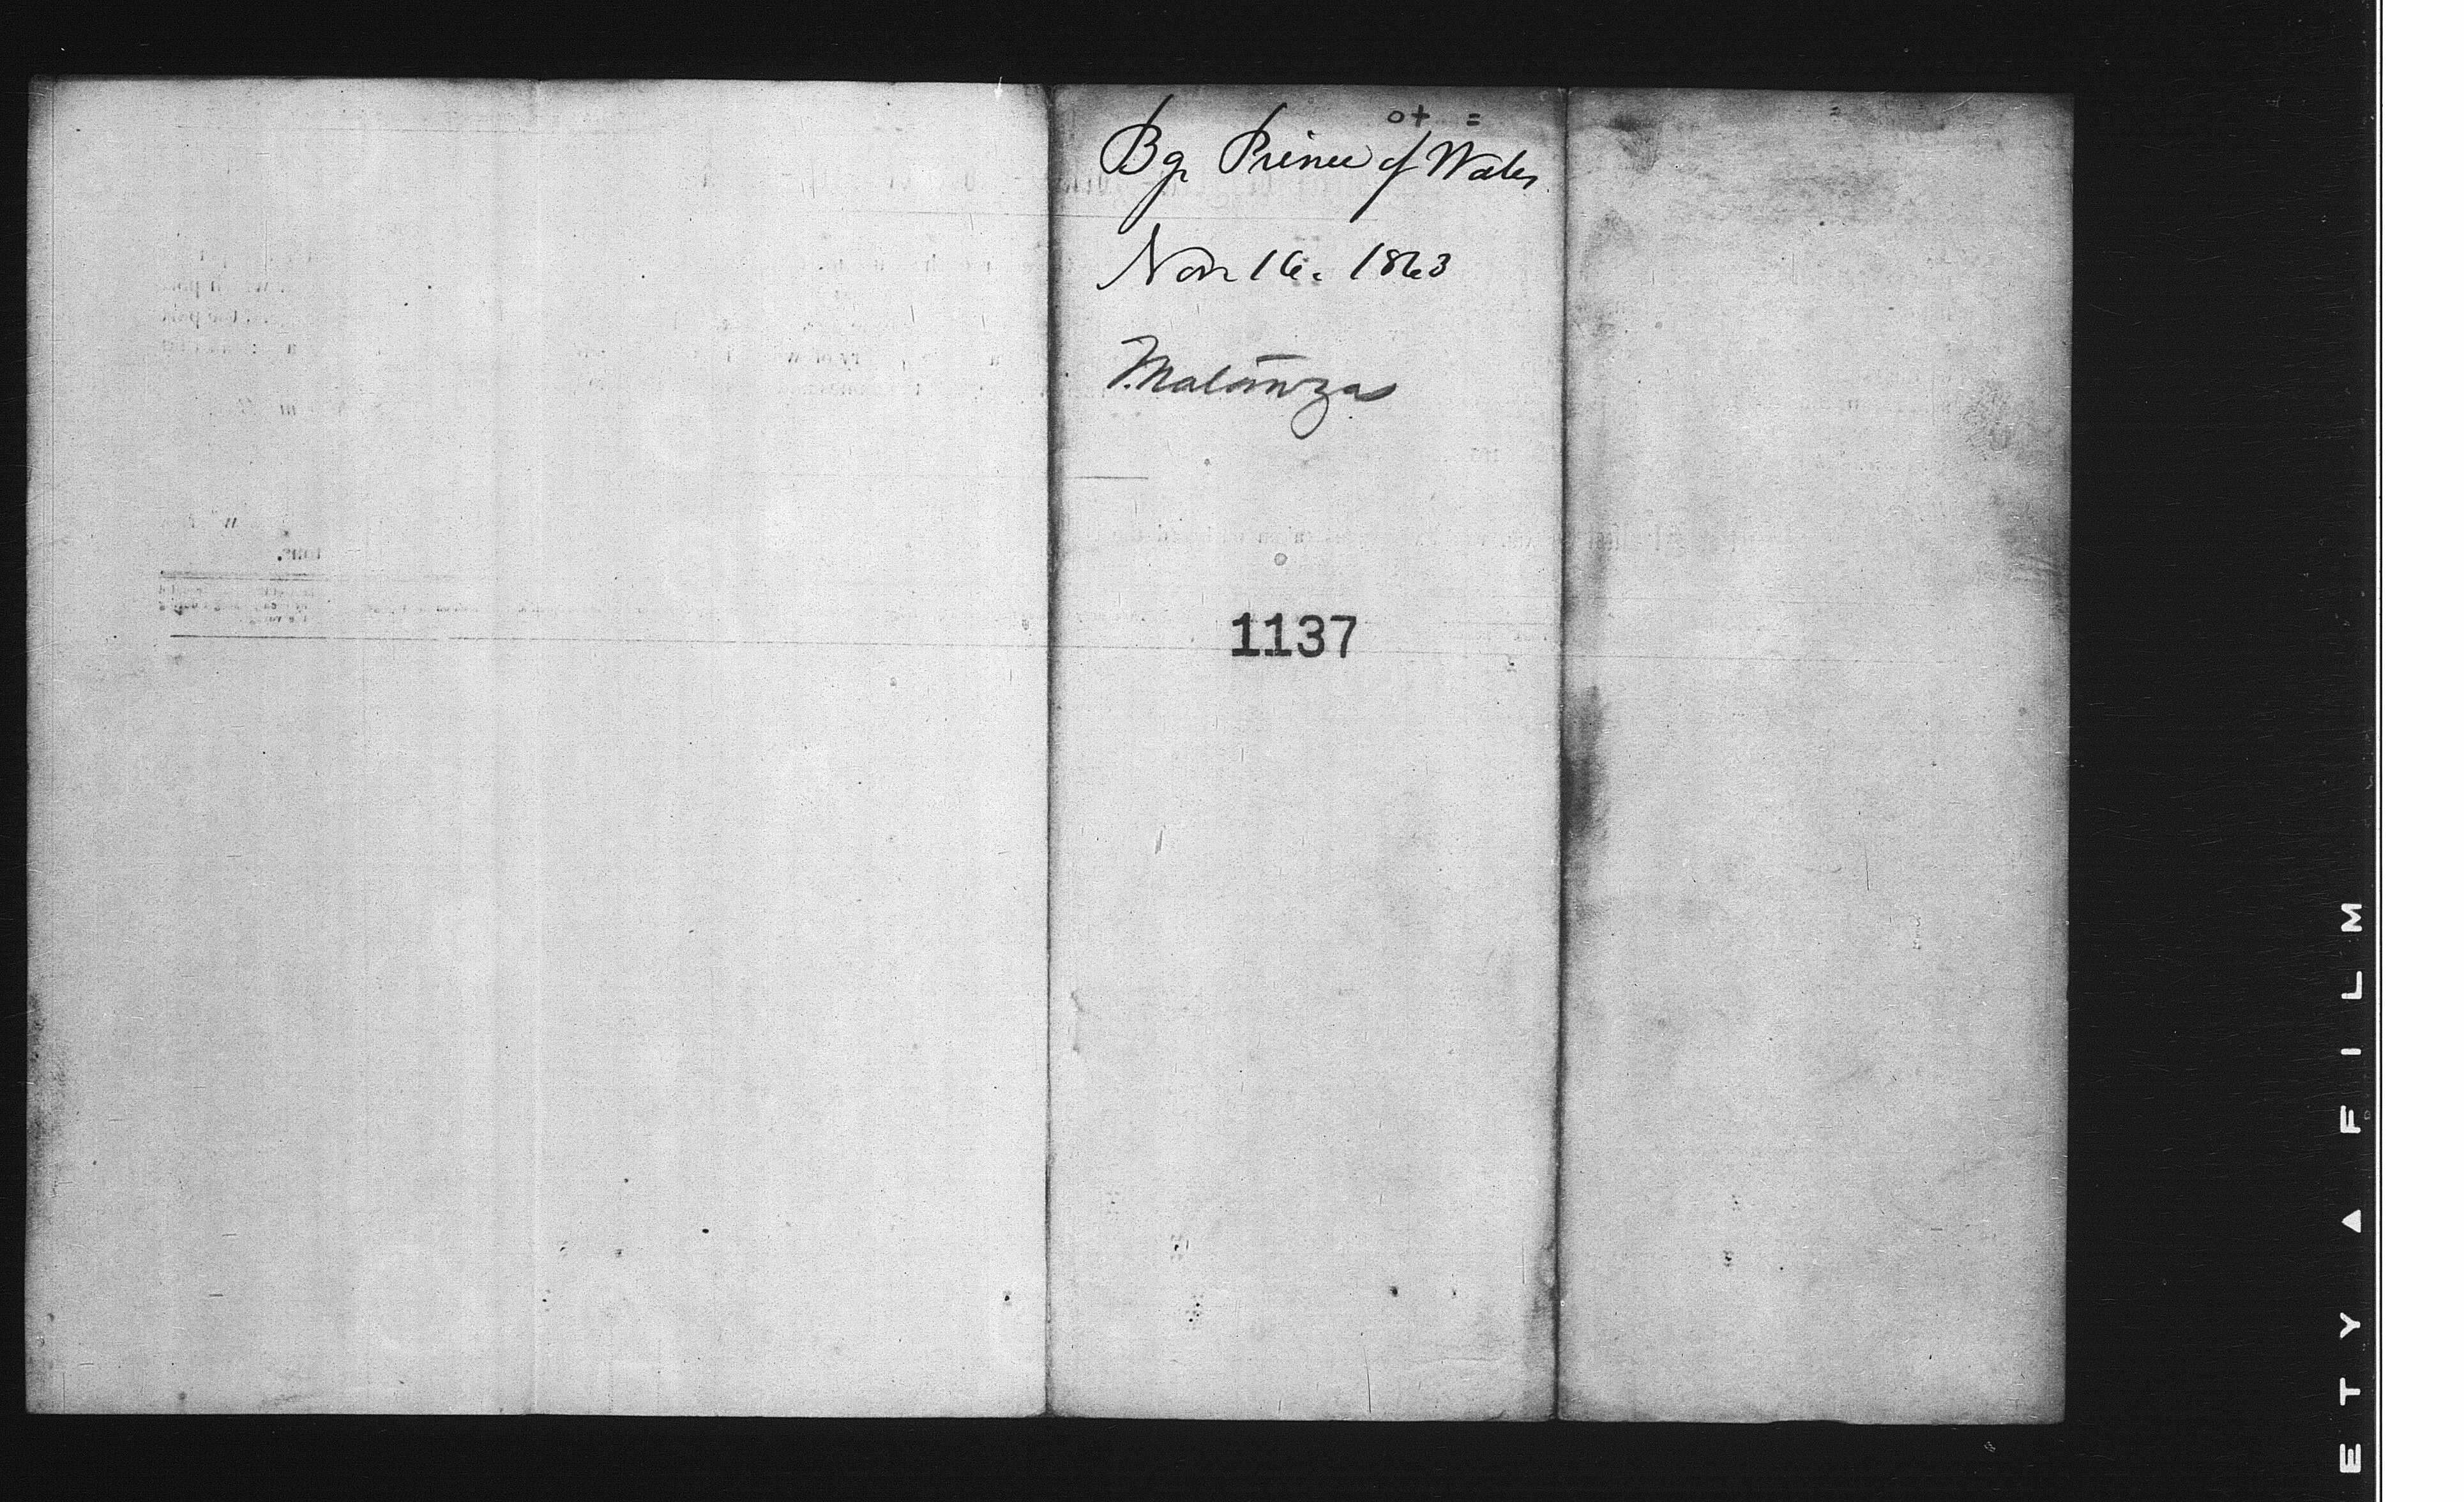 o+ =
Bg. Prince of Wales
Nov 16. 1863
Matanzas
1137
ETY ▲ FILM